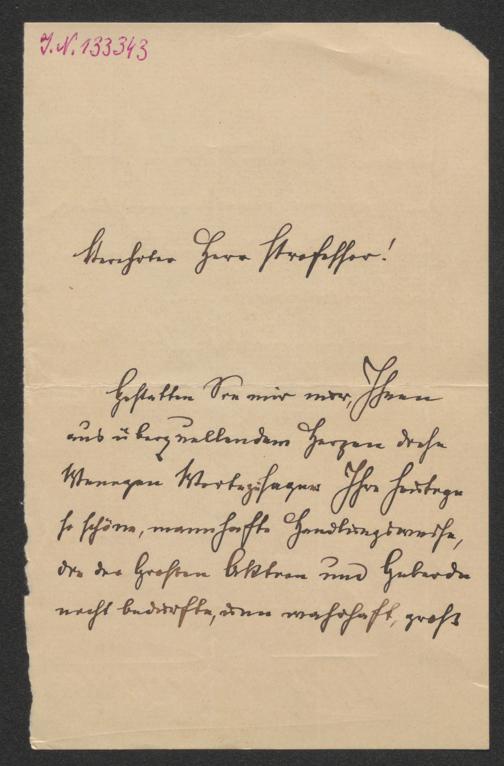 J.N. 133343
Verehrter Herr Professor!
Gestatten Sie mir nur, Ihnen
aus überquellendem Herzen diese
Wenigen Worte zu sagen Ihre heutige
so schöne, mannhafte Handlungsweise,
die der Großen Aktion und Geberde
nicht bedurfte, um wahrhaft, groß